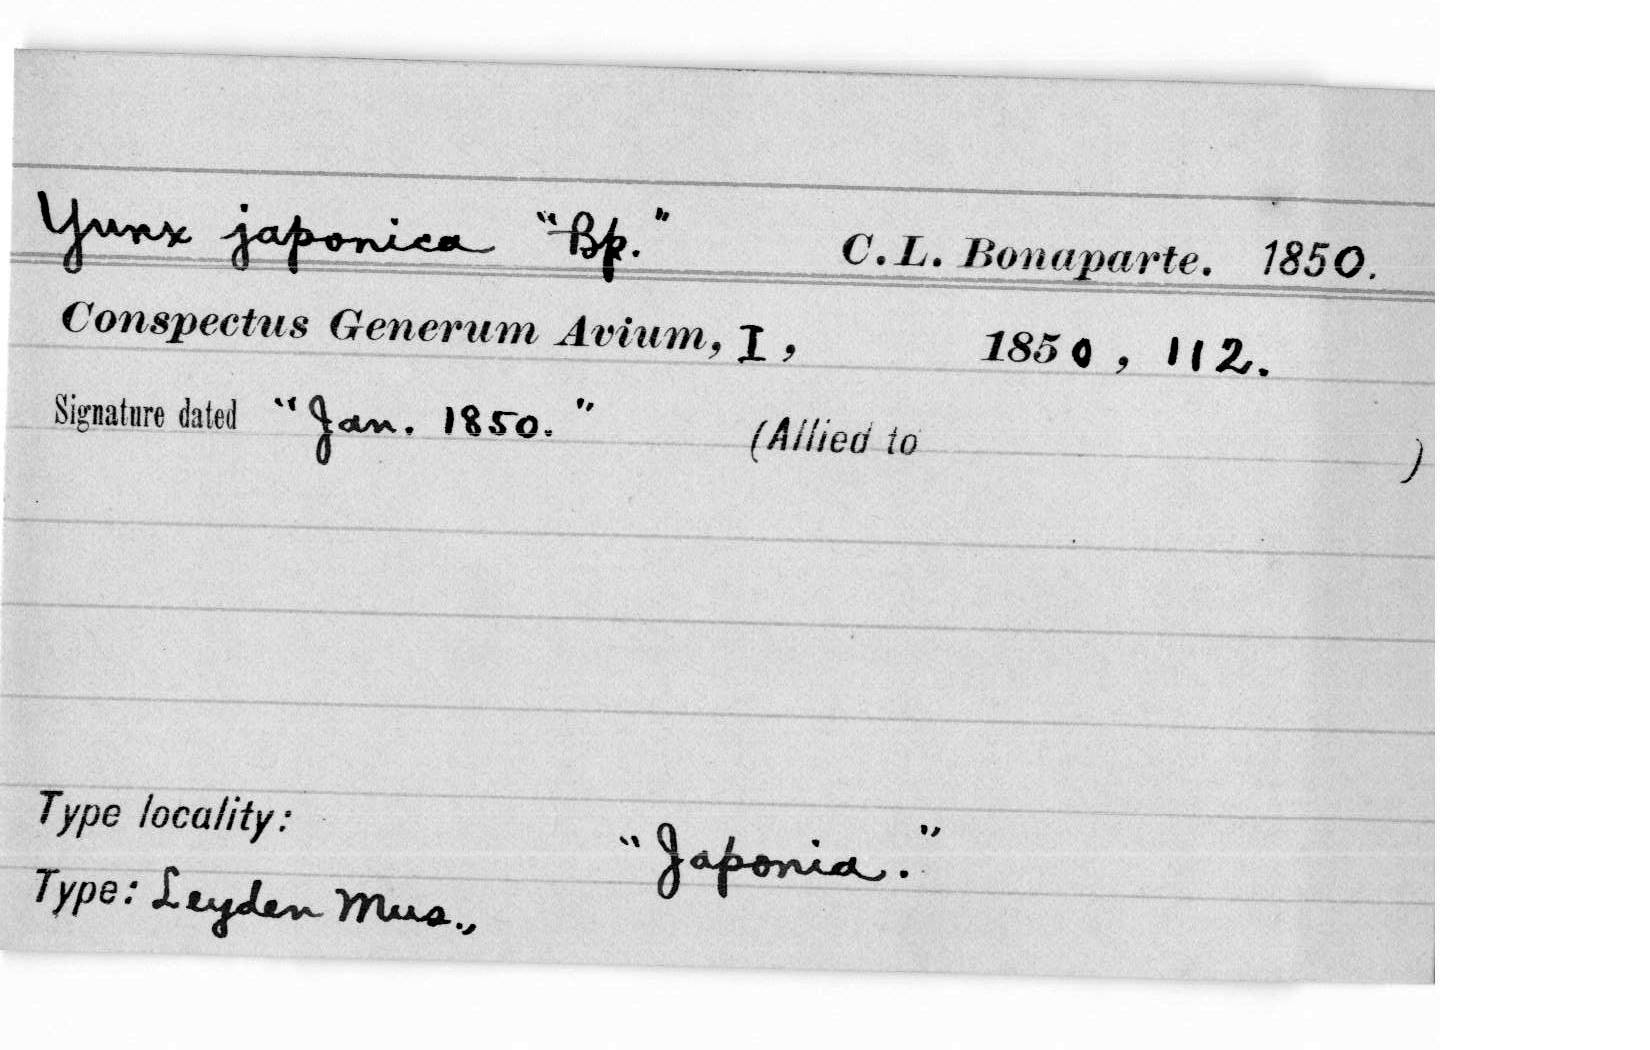 Yunx japonica "Bp." C. L. Bonaparte. 1850.
Conspectus Generum Avium, I, 1850, 112.
Signature dated "Jan. 1850." (Allied to )
Type locality:
"Japonia."
Type: Leyden Mus.,